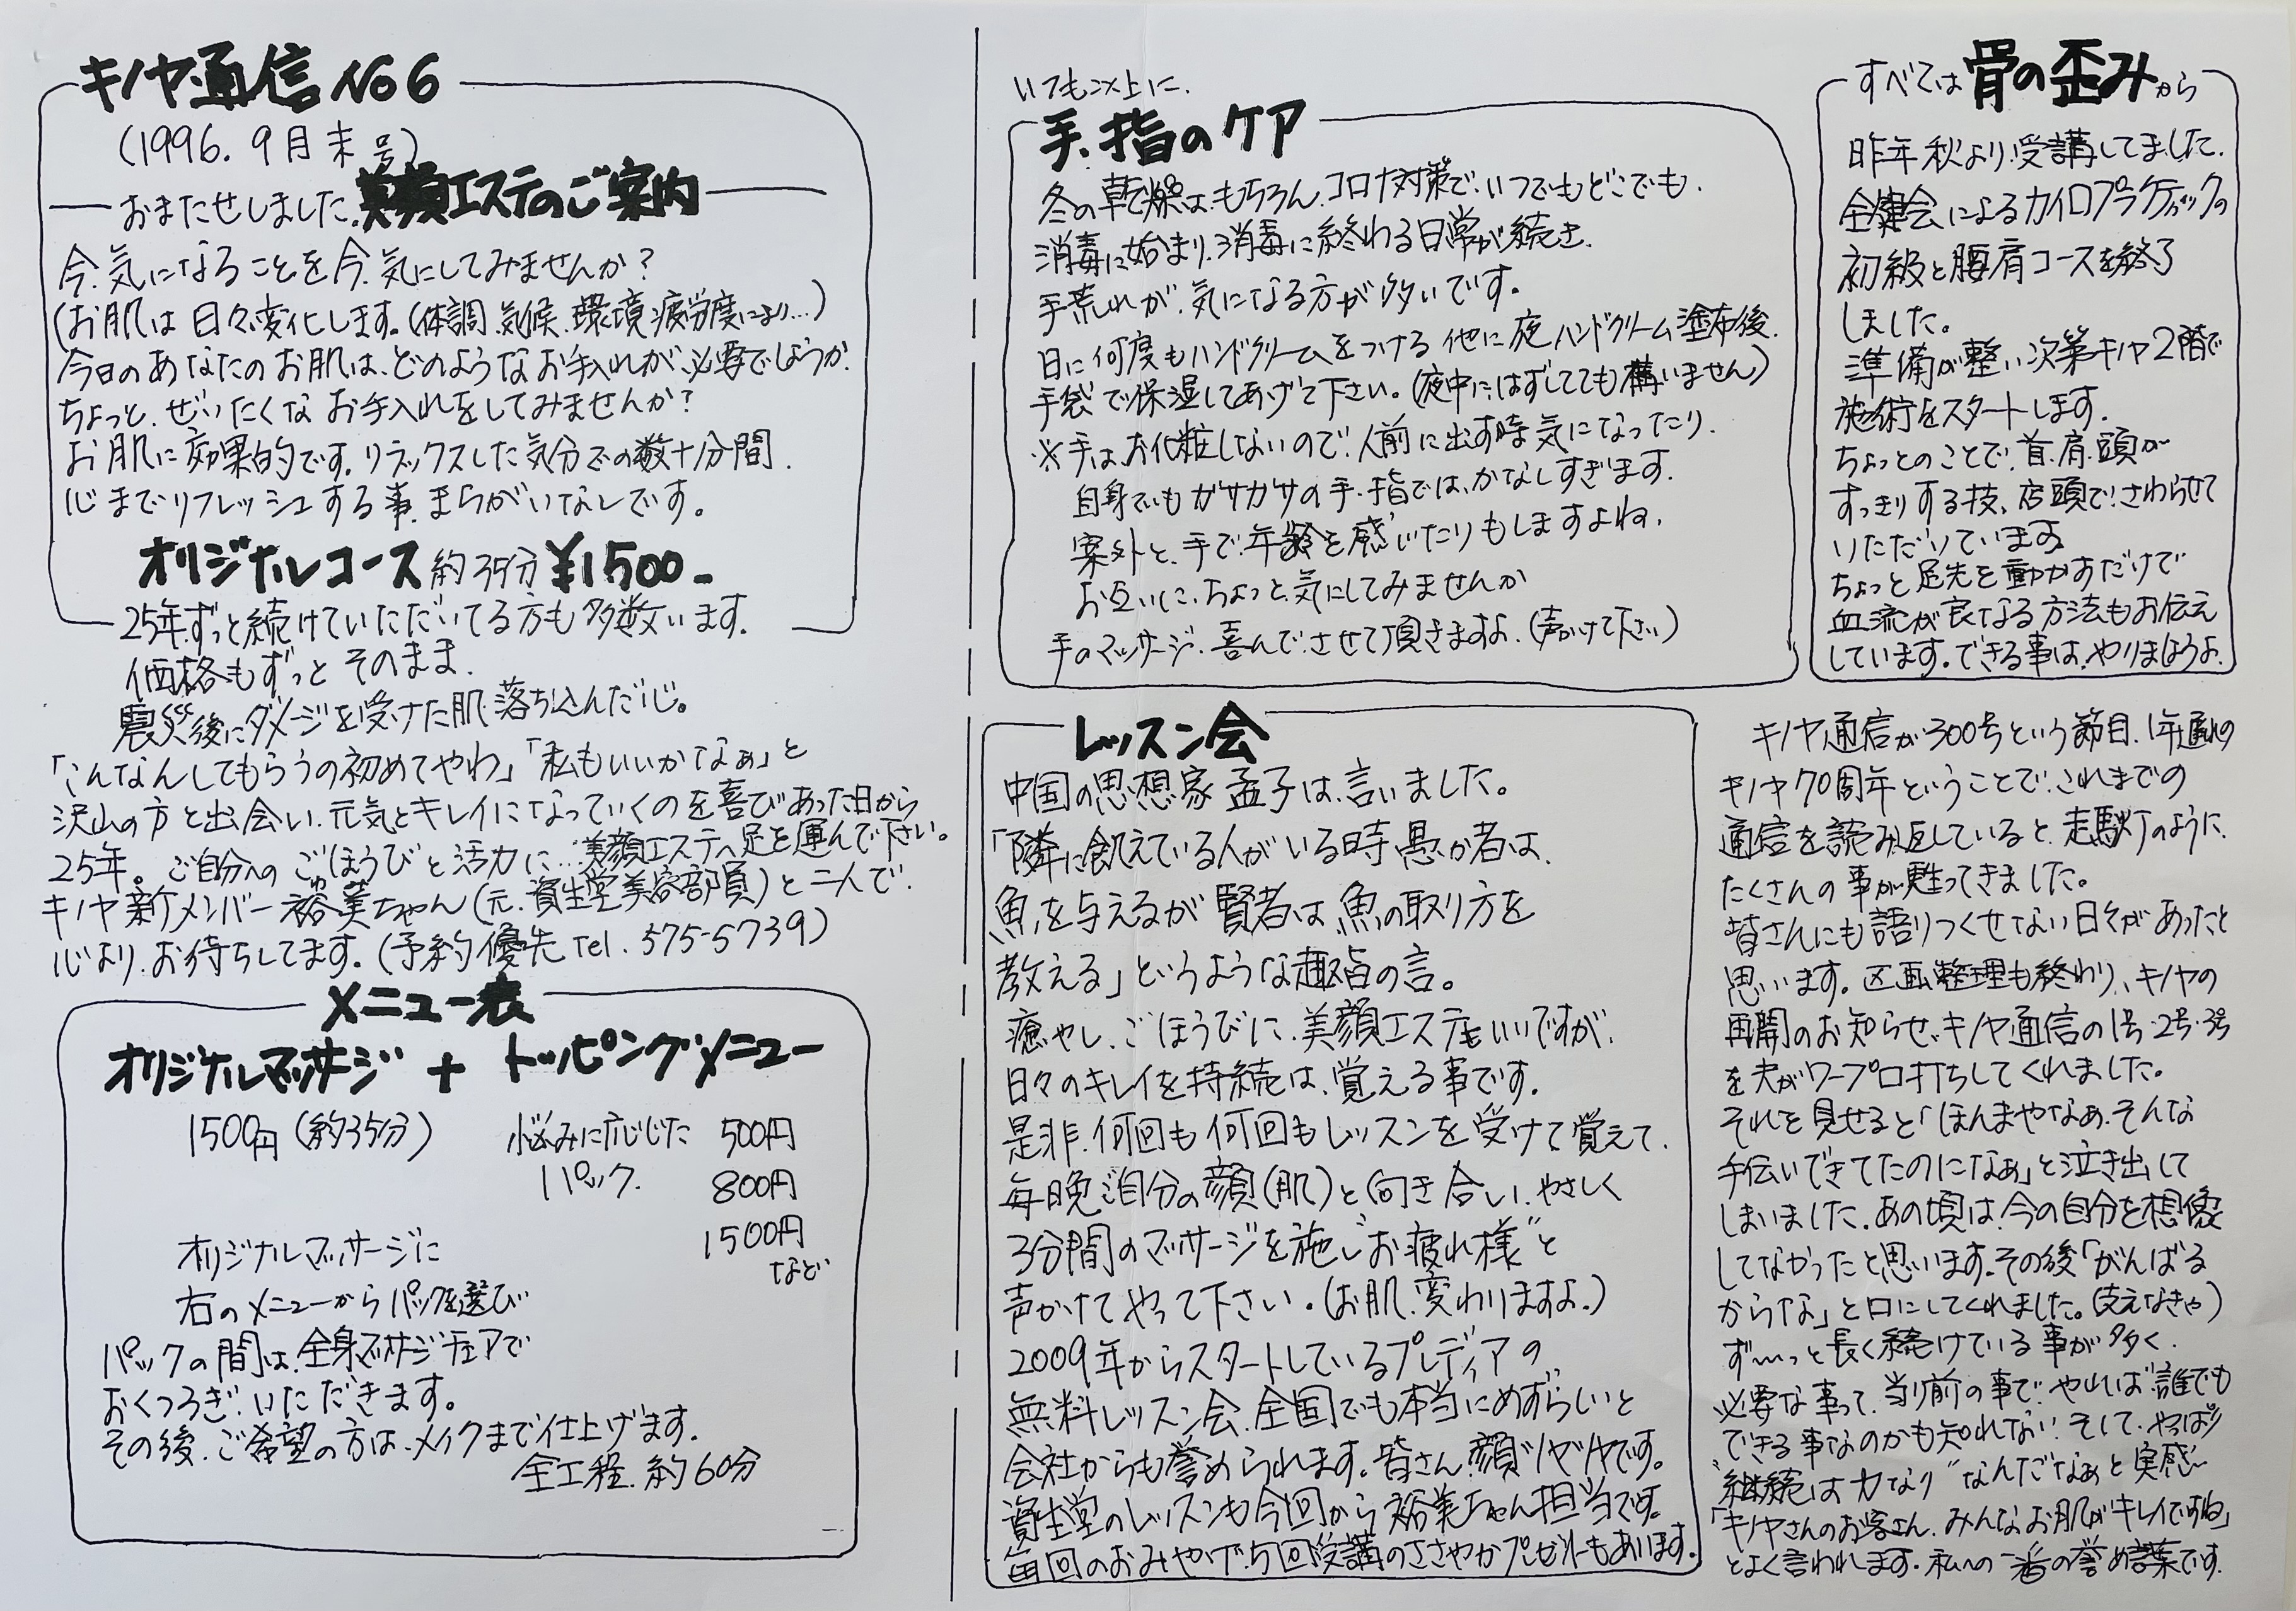 キノヤ通信 No 6
(1996. 9月末号)
おまたせしました. 美顔エステのご案内
今.気になることを今.気にしてみませんか?
(お肌は日々変化します。(体調.気候.環境.疲労度により…)
今日のあなたのお肌は、どのようなお手入れが、必要でしょうか.
ちょっと、ぜいたくなお手入れをしてみませんか?
お肌に効果的です。リラックスした気分での数十分間.
心までリフレッシュする事、まちがいなしです。
オリジナルコース 約35分 ¥1500-
25年.ずっと続けていただいてる方も多数います.
価格もずっとそのまま.
震災後にダメージを受けた肌.落ち込んだ心。
「こんなんしてもらうの初めてやわ」「私もいいかなぁ」と
沢山の方と出会い.元気とキレイになっていくのを喜びあった日から
25年。ご自分へのごほうびと活力に…美顔エステへ足を運んで下さい。
キノヤ新メンバー裕美ちゃん(元.資生堂美容部員)と二人で.
心より.お待ちしてます。(予約優先 Tel. 575-5739)
メニュー表
オリジナルマッサージ + トッピングメニュー
1500円(約35分) 悩みに応じた 500円
パック. 800円
1500円
など
オリジナルマッサージに
右のメニューからパックを選び
パックの間は.全身マッサージチェアで
おくつろぎ.いただきます。
その後.ご希望の方は.メイクまで仕上げます.
全工程.約60分
いつも以上に.
手.指のケア
冬の乾燥はもちろん.コロナ対策で.いつでもどこでも.
消毒に始まり.消毒に終わる日常が続き.
手荒れが.気になる方が多いです。
日に何度もハンドクリームをつける他に夜ハンドクリーム塗布後.
手袋で保湿してあげて下さい。(夜中にはずしても構いません)
※手は.お化粧しないので.人前に出す時気になったり.
自身でもガサガサの手.指では、かなしすぎます.
案外と.手で.年齢を感じたりもしますよね.
お互いに.ちょっと.気にしてみませんか
手のマッサージ.喜んでさせて頂きますよ.(声かけて下さい)
すべては骨の歪みから
昨年秋より受講してました.
全健会によるカイロプラクティックの
初級と腰肩コースを終了
しました。
準備が整い次第キノヤ2階で
施術をスタートします.
ちょっとのことで.首.肩.頭が
すっきりする技、店頭で.さわらせて
いただいています.
ちょっと足先を動かすだけで
血流が良くなる方法もお伝え
しています。できる事は.やりましょうよ.
レッスン会
中国の思想家 孟子は、言いました。
「隣に飢えている人がいる時愚か者は.
魚を与えるが賢者は魚の取り方を
教える」というような趣旨の言。
癒やし.ごほうびに.美顔エステもいいですが.
日々のキレイを持続は、覚える事です.
是非.何回も何回もレッスンを受けて覚えて.
毎晩ご自分の顔(肌)と向き合い.やさしく
3分間のマッサージを施し“お疲れ様”と
声かけてやって下さい。(お肌.変わりますよ.)
2009年からスタートしているプレディアの
無料レッスン会.全国でも本当にめずらしいと
会社からも誉められます。皆さん.顔ツヤツヤです。
資生堂のレッスンも今回から裕美ちゃん担当です。
毎回のおみやげで.5回受講のささやかプレゼントもあります.
キノヤ通信が300号という節目.1年遅れの
キノヤ70周年ということで.これまでの
通信を読み返していると.走馬灯のように.
たくさんの事が甦ってきました。
皆さんにも語りつくせない日々があったと
思います。区画整理も終わり、キノヤの
再開のお知らせ、キノヤ通信の1号・2号・3号
を夫がワープロ打ちしてくれました。
それを見せると「ほんまやなぁ.そんな
手伝いできてたのになぁ」と泣き出して
しまいました.あの頃は.今の自分を想像
してなかったと思います。その後「がんばる
からな」と口にしてくれました。(支えなきゃ)
ず〜っと長く続けている事が多く.
必要な事って.当り前の事で.やれば誰でも
できる事なのかも知れない.そして.やっぱり
“継続は力なり”なんだなぁと実感〜
「キノヤさんのお客さん.みんなお肌がキレイですね」
とよく言われます.私への一番の誉め言葉です.